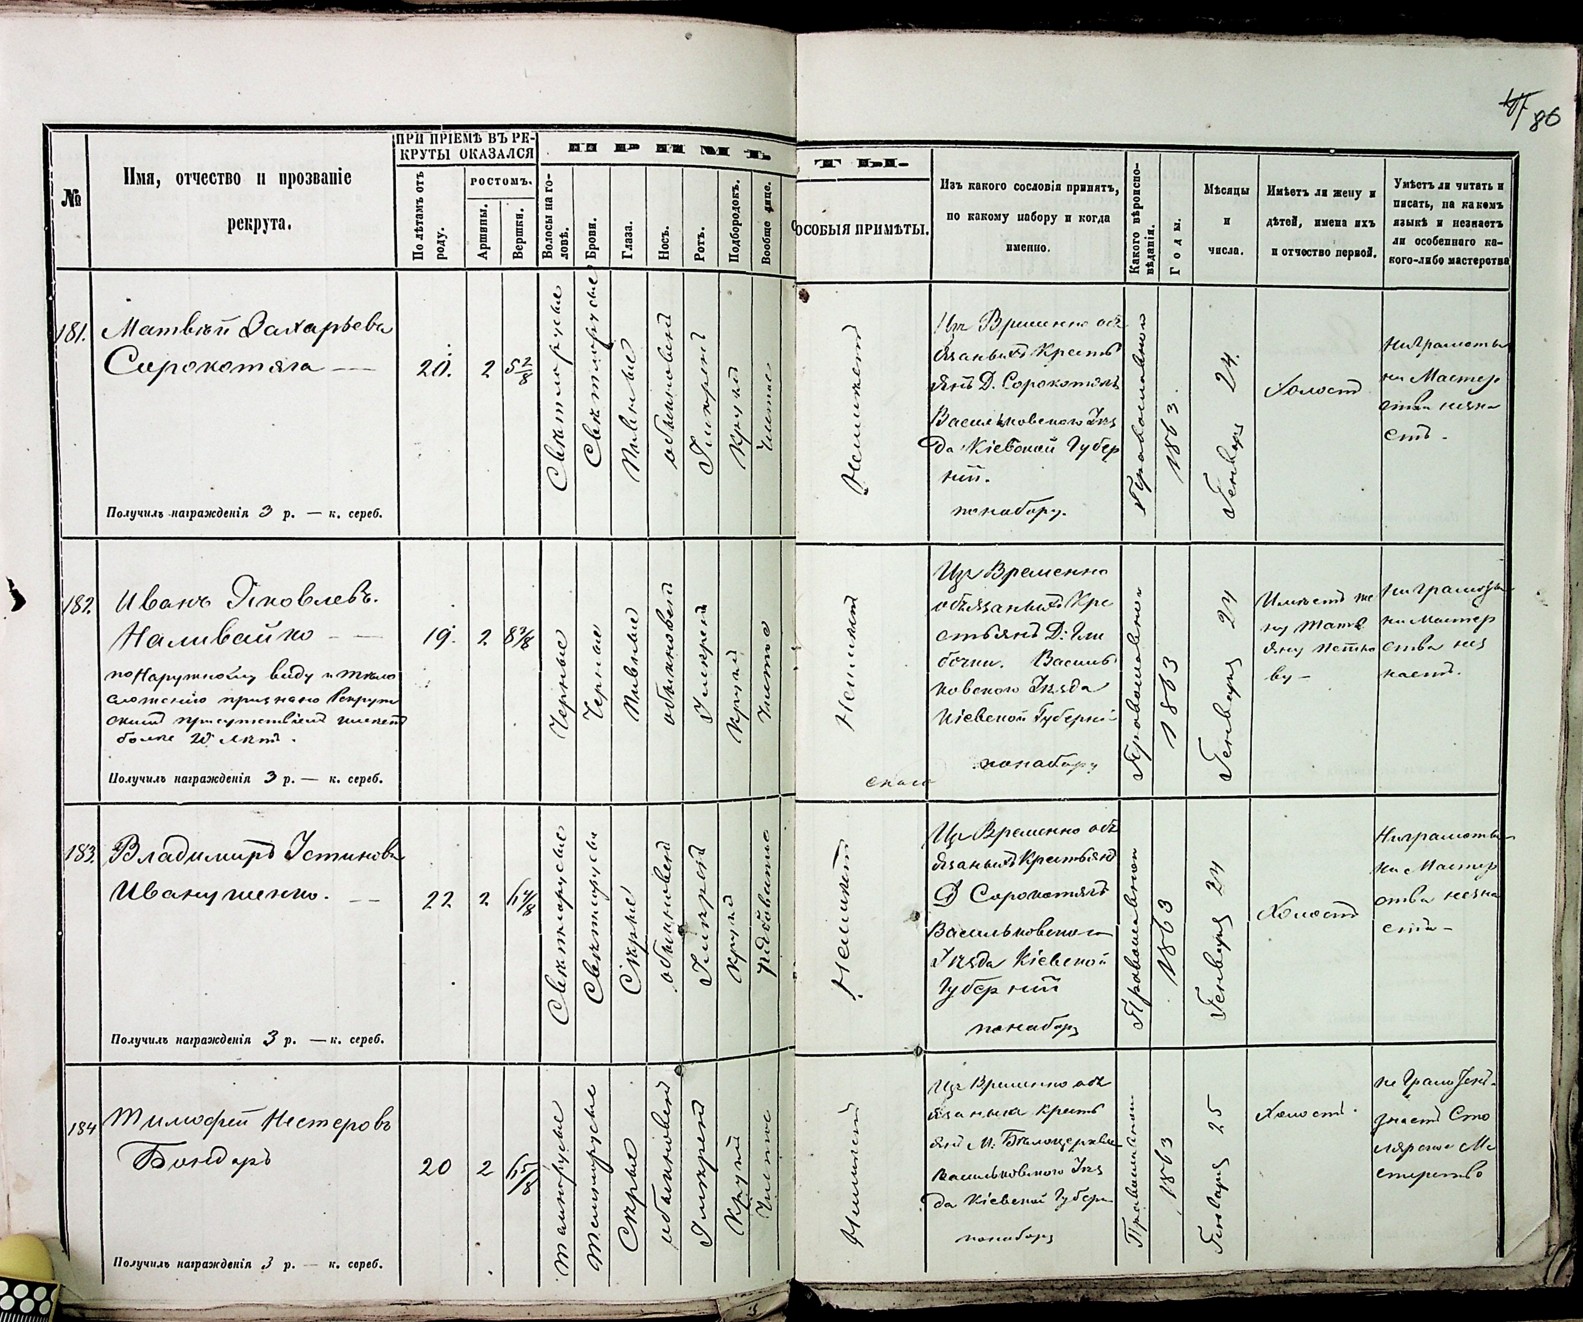 86
№
Имя, отчество и прозваніе
рекрута.
ПРИ ПРІЕМѢ ВЪ РЕ-
КРУТЫ ОКАЗАЛСЯ
По лѣтамъ отъ
роду.
ростомъ.
Аршины.
Вершки.
ПРИМѢ
Волосы на го-
ловѣ.
Брови.
Глаза.
Носъ.
Ротъ.
Подбородокъ.
Вообще лице.
ТЫ.
ОСОБЫЯ ПРИМѢТЫ.
Изъ какого сословія принятъ,
по какому набору и когда
именно.
Какого вѣроиспо-
вѣданія.
Годы.
Мѣсяцы
и
числа.
Имѣетъ ли жену и
дѣтей, имена ихъ
и отчество первой.
Умѣетъ ли читать и
писать, на какомъ
языкѣ и незнаетъ
ли особеннаго ка-
кого-либо мастерства
181.
Матвѣй Захарьевъ
Сорокотяга
Получилъ награжденія 3 р. — к. сереб.
20.
2
5 2/8
Свѣтлорусые
Свѣтлорусые
Пивные
обыкновенный
Умѣренъ
Круглый
Чистое
Неимѣетъ
Изъ Временно обя
занныхъ Кресть
янъ Д. Сорокотягъ
Васильковского Уѣз
да Кіевской Губер
ніи.
понабору.
Православного
1863
Генваря 24.
Холостъ
Неграмотны
ни Мастер
ства незна
етъ.
182.
Иванъ Яковлевъ.
Наливайко
по Наружному виду и тѣло
сложенію признано Рекрут
скимъ присутствіемъ имѣетъ
более 20 лѣтъ.
Получилъ награжденія 3 р. — к. сереб.
19.
2
8 3/8
Черные
Черные
Пивные
обыкновен
Умѣрен
Круглый
Чистое
Неимѣетъ
Изъ Временно
обязанныхъ Кре
стьянъ Д.
Василь
ковского Уѣзда
Кіевской Губерніи
понабору
Православного
1863
Генваря 24
Имѣетъ же
ну Тать
яну
ву
Неграмотны
ни Мастер
ства нез
наетъ.
183.
Владимиръ Устиновъ
Иванушенко.
Получилъ награжденія 3 р. — к. сереб.
22
2
6 4/8
Свѣтлорусые
Свѣтлорусые
Сѣрые
обыкновен
Умѣрен
Круглый
рябоватое
Неимѣетъ
Изъ Временно обя
занныхъ Крестьянъ
Д Сорокотягъ
Васильковского
Уѣзда Кіевской
Губерніи
понабору
Православного
1863
Генваря 24
Холостъ
Неграмотны
ни Мастер
ства незна
етъ
184
Тимофей Нестеровъ
Бондарь
Получилъ награжденія 3 р. — к. сереб.
20
2
6 5/8
Темнорусые
Темнорусые
Сѣрые
обыкновенный
Умѣренъ
Круглый
Чистое
Неимѣетъ
Изъ Временно обя
занныхъ Кресть
янъ М. Бѣлоцеркви
Васильковского Уѣз
да Кіевской Губер
понабору
Православного
1863
Генваря 25
Холостъ.
не Грамотенъ
знаетъ Сто
лярское Ма
стерство